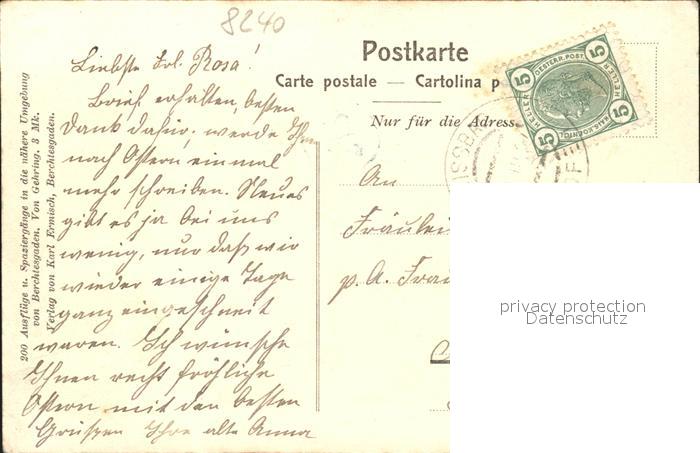 8240
Postkarte
Carte postale — Cartolina p
Nur für die Adress
5 OESTERR. POST. 5
HELLER HELLER
5 5
200 Ausflüge u. Spaziergänge in die nähere Umgebung
von Berchtesgaden. Von Gehring. 3 Mk.
Verlag von Karl Ermisch, Berchtesgaden.
Liebste Frl. Rosa!
Brief erhalten, besten
Dank dafür; werde Ihnen
nach Ostern einmal
mehr schreiben. Neues
gibt es ja bei uns
wenig, nur daß wir
wieder einige Tage
ganz eingeschneit
waren. Ich wünsche
Ihnen recht fröhliche
Ostern mit den besten
Grüssen Ihre alte Anna
An
Fräulei
p. A. Frau
privacy protection
Datenschutz